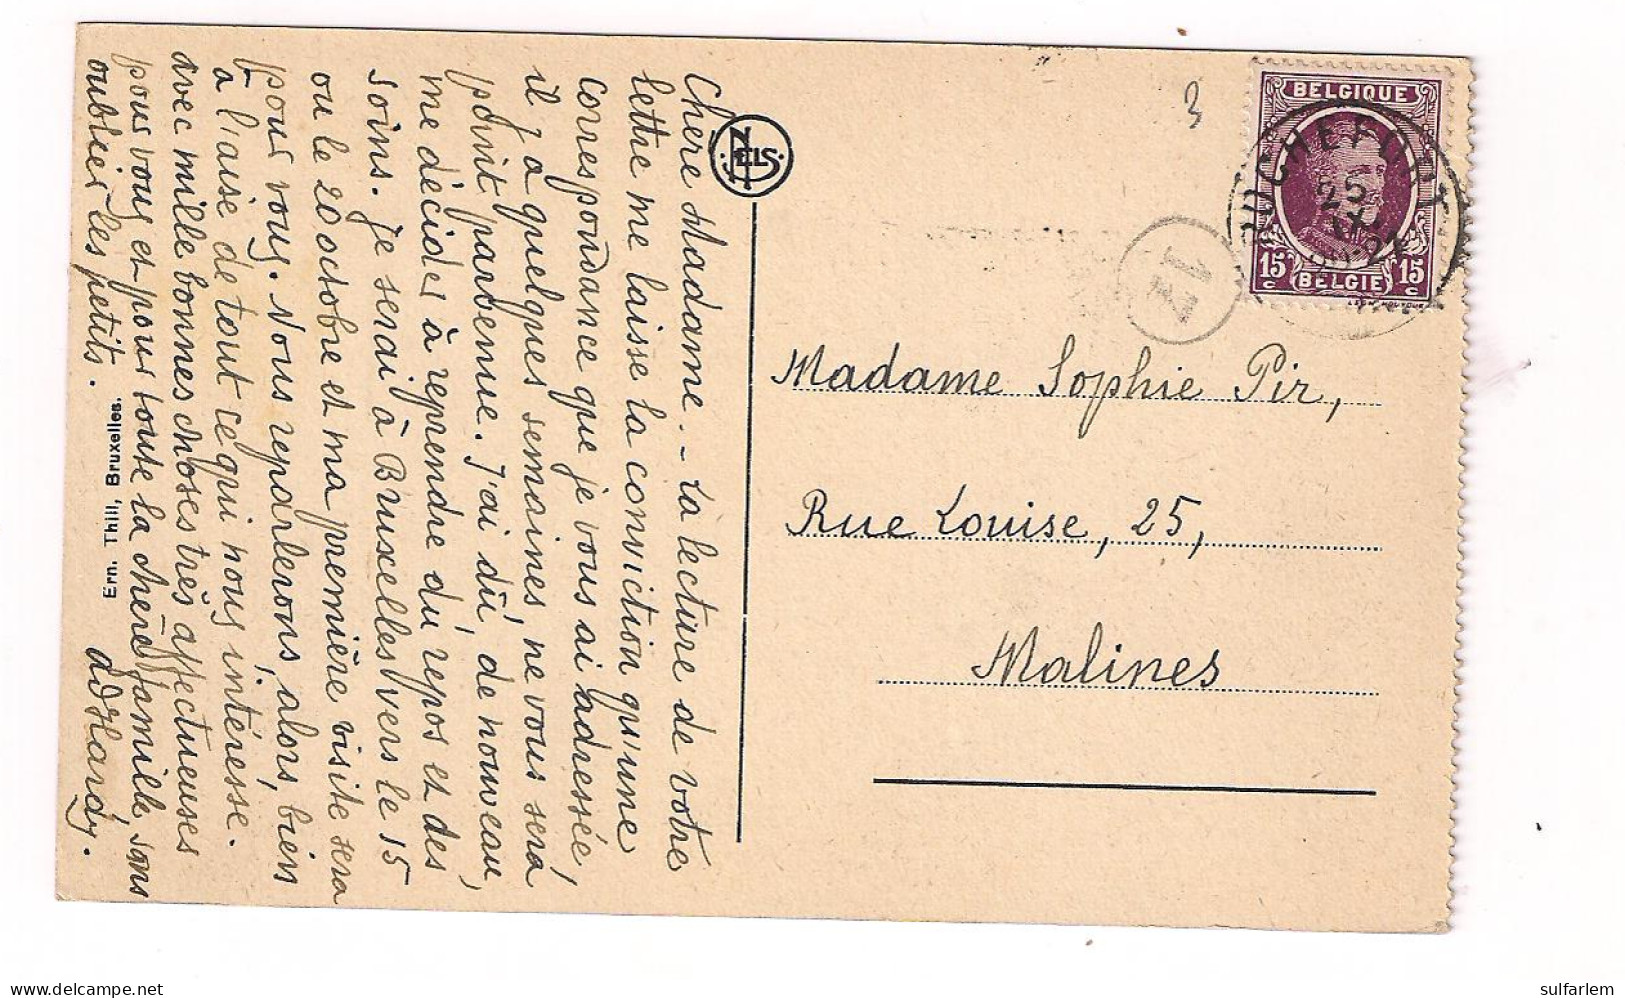 Chère Madame. – La lecture de votre
lettre me laisse la conviction qu'une
correspondance que je vous ai adressée,
il y a quelques semaines, ne vous sera
point parvenue. J'ai dû, de nouveau,
me décider à reprendre du repos et des
soins. Je serai à Bruxelles vers le 15
ou le 20 octobre et ma première visite sera
pour vous. Nous reparlerons, alors, bien
à l'aise de tout ce qui nous intéresse.
avec mille bonnes choses très affectueuses
pour vous et pour toute la chère famille, sans
oublier les petits.
Hardy.
Ern. Thill, Bruxelles.
NELS
3
BELGIQUE
15 c
BELGIE
15 c
ROCHEFORT
17
Madame Sophie Pir,
Rue Louise, 25,
Malines
sulfarlem